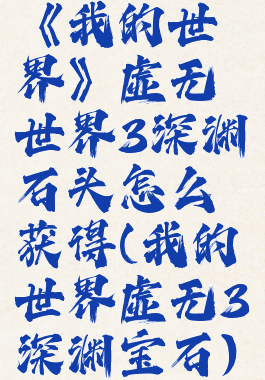 《我的世
界》虚无
世界3深渊
石头怎么
获得(我的
世界虚无3
深渊宝石)